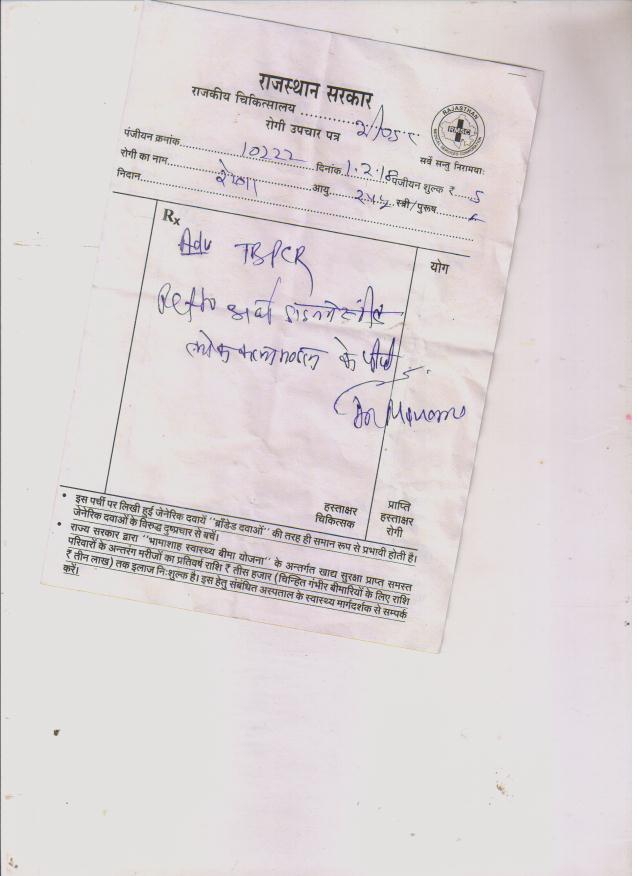 राजस्थान सरकार
राजकीय चिकित्सालय
रोगी उपचार पत्र
RAJASTHAN
सर्वे सन्तु निरामयाः
पंजीयन क्रमांक 10222 दिनांक 1.2.18 पंजीयन शुल्क ₹ 5
रोगी का नाम आयु स्त्री/पुरूष
निदान
Rx
योग
Adv TBPCR
के पीछे
Dr
हस्ताक्षर
चिकित्सक
प्राप्ति
हस्ताक्षर
रोगी
• इस पर्ची पर लिखी हुई जेनेरिक दवायें "ब्रॉंडेड दवाओं" की तरह ही समान रूप से प्रभावी होती है।
जेनेरिक दवाओं के विरूद्ध दुष्प्रचार से बचें।
• राज्य सरकार द्वारा "भामाशाह स्वास्थ्य बीमा योजना" के अन्तर्गत खाद्य सुरक्षा प्राप्त समस्त
परिवारों के अन्तरंग मरीजों का प्रतिवर्ष राशि ₹ तीस हजार (चिन्हित गंभीर बीमारियों के लिए राशि
₹ तीन लाख) तक इलाज निःशुल्क है। इस हेतु संबंधित अस्पताल के स्वास्थ्य मार्गदर्शक से सम्पर्क
करें।